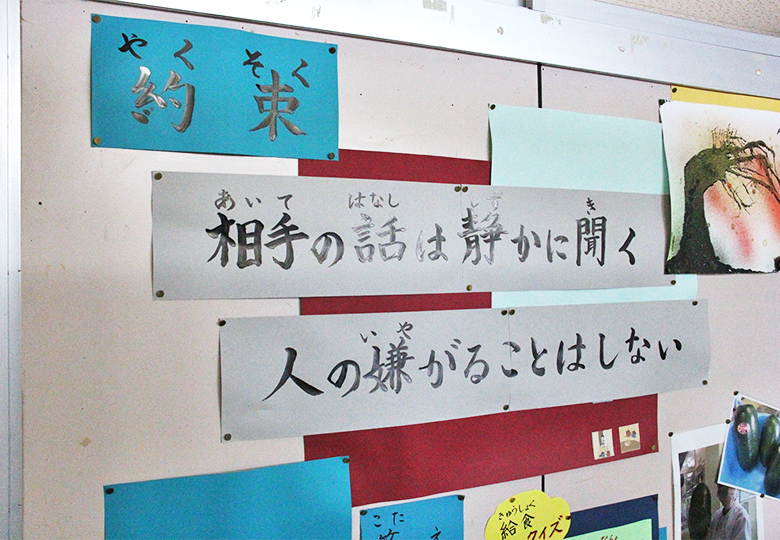 やくそく
約束
あいて はなし しず き
相手の話は静かに聞く
いや
人の嫌がることはしない
こた
え
きゅうしょく
給食
クイズ